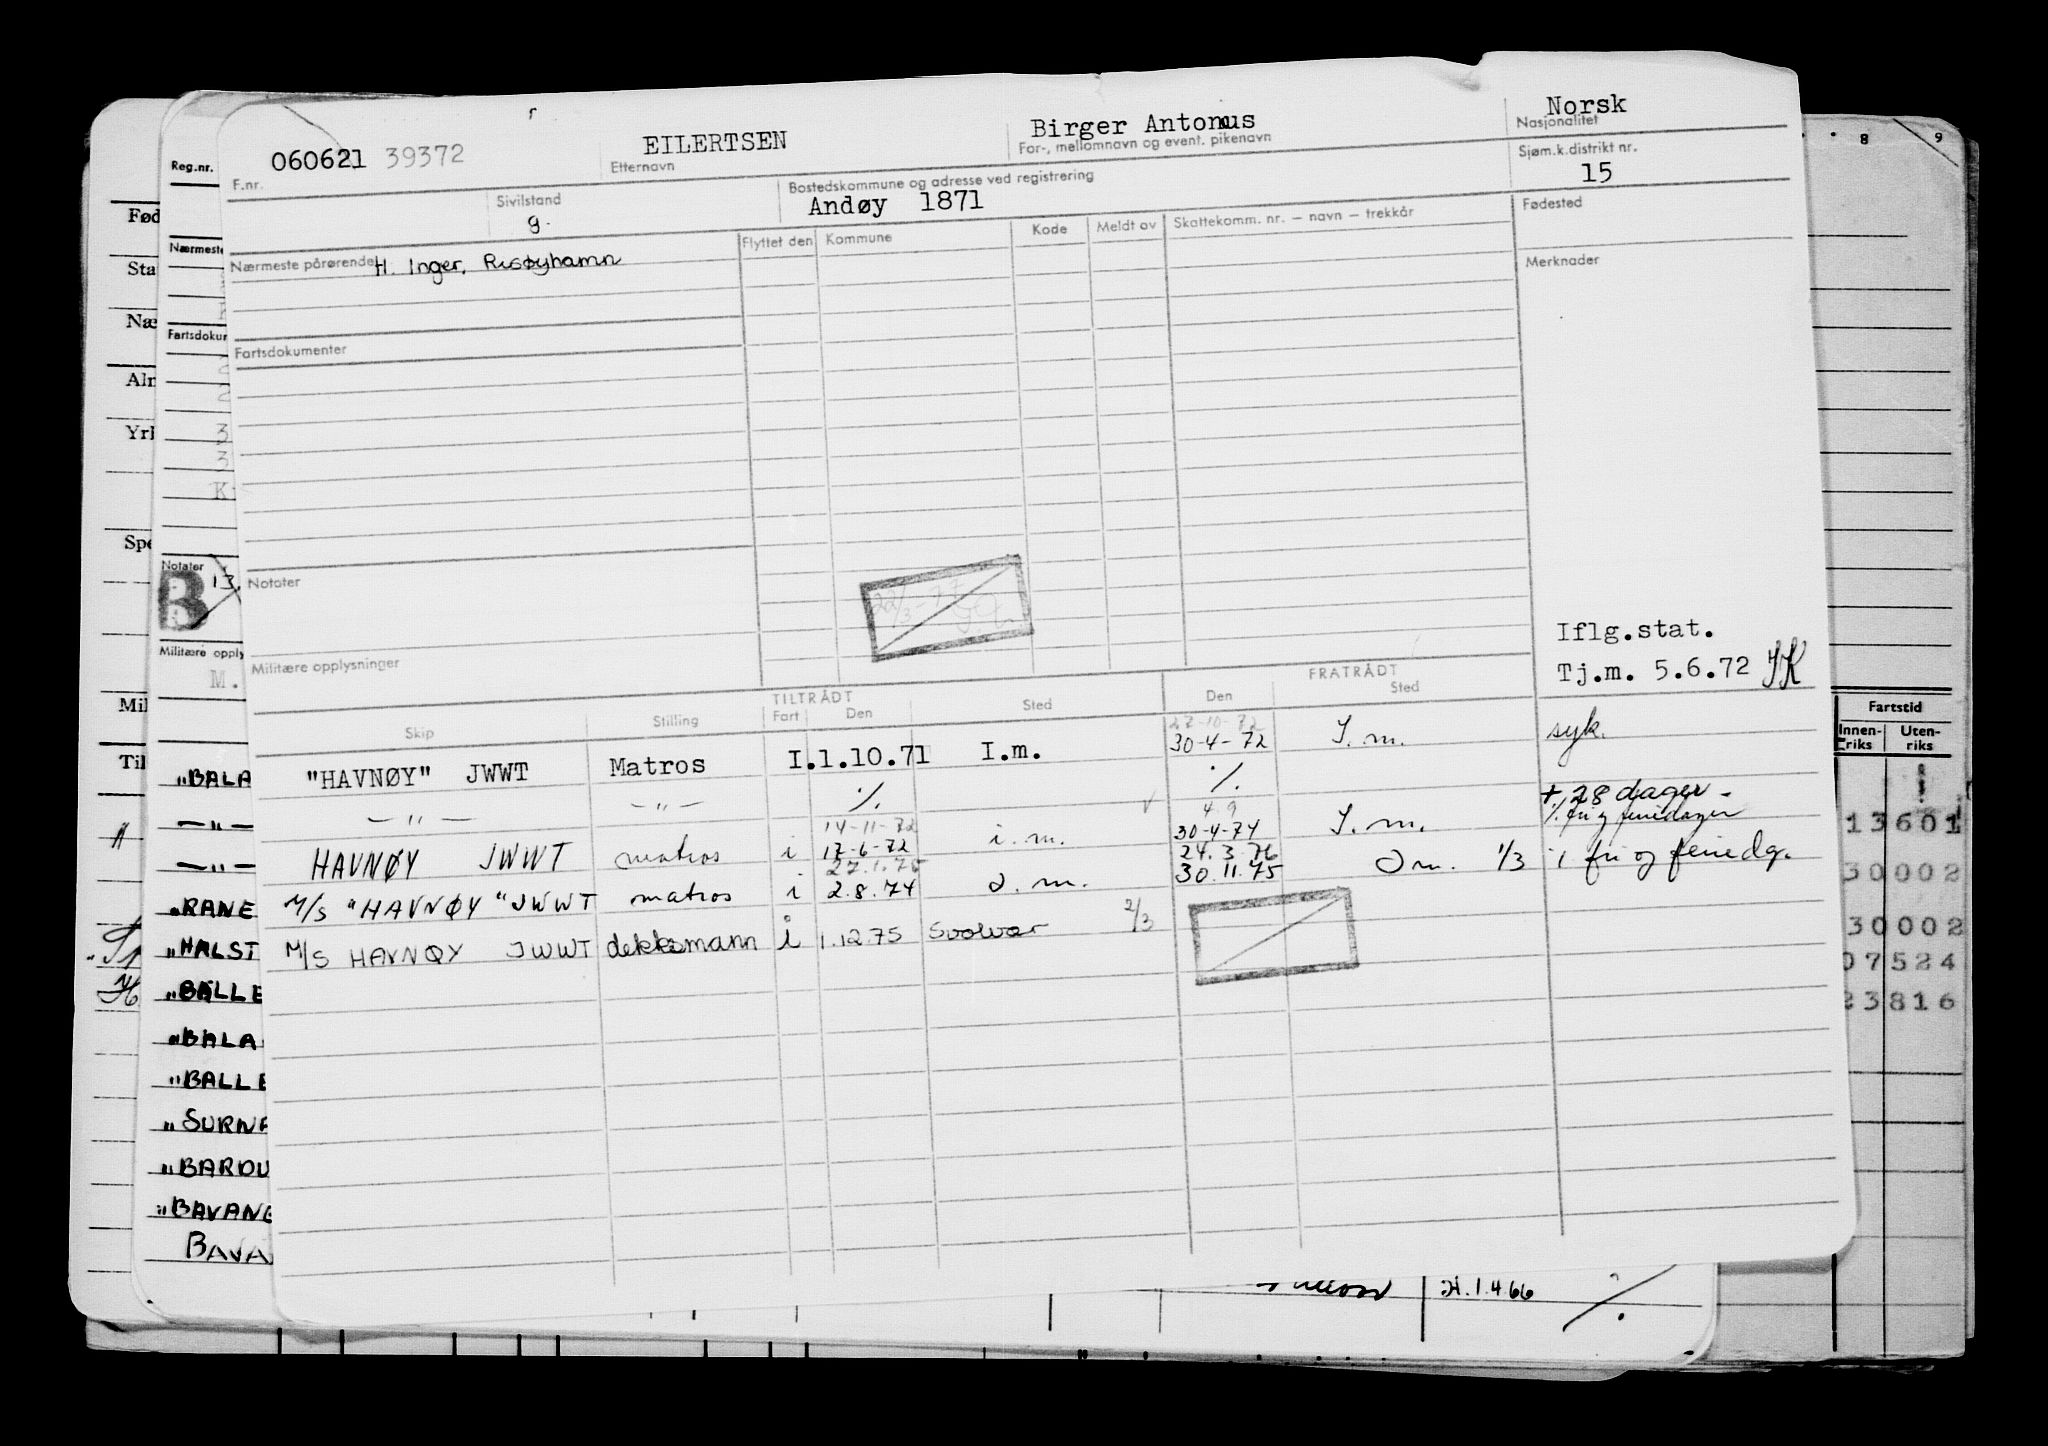 060621 39372 EILERTSEN Birger Antonus Norsk
F.nr. Etternavn For-, mellomnavn og event. pikenavn Nasjonalitet
Sivilstand Bostedskommune og adresse ved registrering Sjøm.k.distrikt nr.
g. Andøy 1871 15
Nærmeste pårørende H. Inger, Risøyhamn Flyttet den Kommune Kode Meldt av Skattekomm. nr. – navn – trekkår Fødested
Merknader
Fartsdokumenter
Notater
Iflg.stat.
Militære opplysninger Tj.m. 5.6.72 JK
TILTRÅDT FRATRÅDT
Skip Stilling Fart Den Sted Den Sted
27-10-72
"HAVNØY" JWWT Matros I.1.10.71 I.m. 30-4-72 I.m. syk.
— " — — " — %. %. + 28 dager -
14-11-72 4 9 % fri og feriedager
HAVNØY JWWT matros i 17-6-72 i.m. 30-4-74 I.m.
27.1.75 24.3.76
M/S "HAVNØY" JWWT matros i 2.8.74 I.m. 30.11.75 I m. 1/3 i fri og feriedg.
M/S HAVNØY JWWT dekksmann i 1.12.75 Svolvær 2/3
Reg.nr.
Nærmeste
Fartsdokum
Notater
B 13.
Militære opply
M.
"BALA
— " —
— " —
"RANE
"HALST
"BALLE
"BALA
"BALLE
"SURNA
"BARDU
"BAVANE
BAVA
Fød
Sta
Næ
Alm
Yrk
Spe
Mil
Til
8 9
Fartstid
Innenriks Utenriks
13601
30002
30002
07524
23816
H.1.4.66